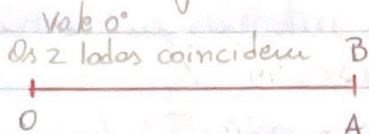 Vale 0°
Os 2 lados coincidem B
O A